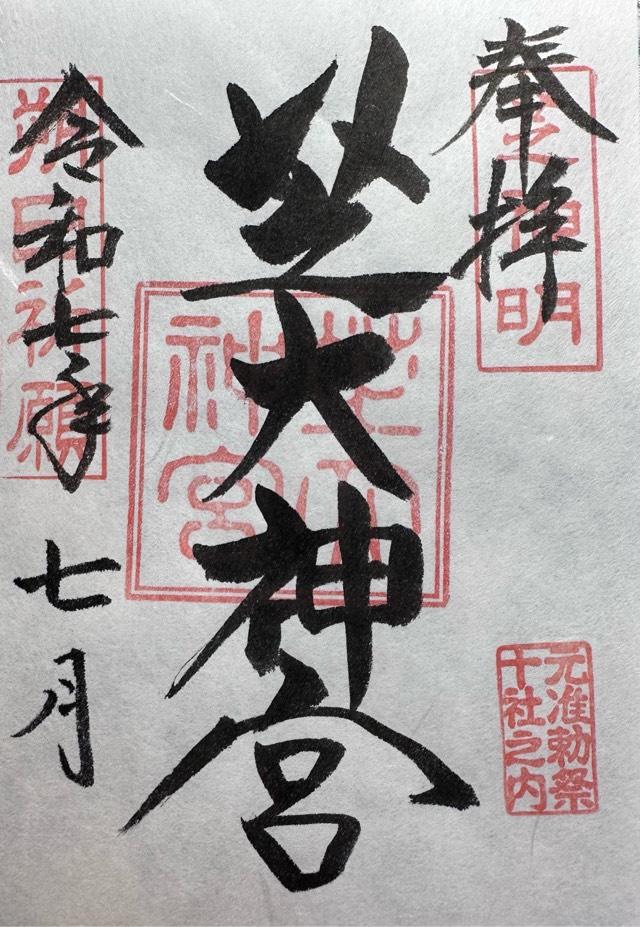 奉拝
芝神明
元准勅祭
十社之内
芝大神宮
芝大
神宮
令和七年 七月
朔日祈願